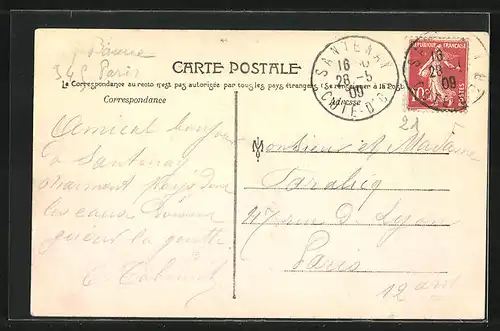 CARTE POSTALE
La Correspondance au recto n'est pas autorisée par tous les pays étrangers (Se renseigner à la Poste
Correspondance
Adresse
SANTENAY
16
28-5
09
CÔTE-D'OR
REPUBLIQUE FRANÇAISE
16
28
09
10
21
Paris
Amical bonjour
à Santenay
charmant pays dont
les eaux
la goutte
Monsieur et Madame
47 rue de Lyon
Paris
12 arr